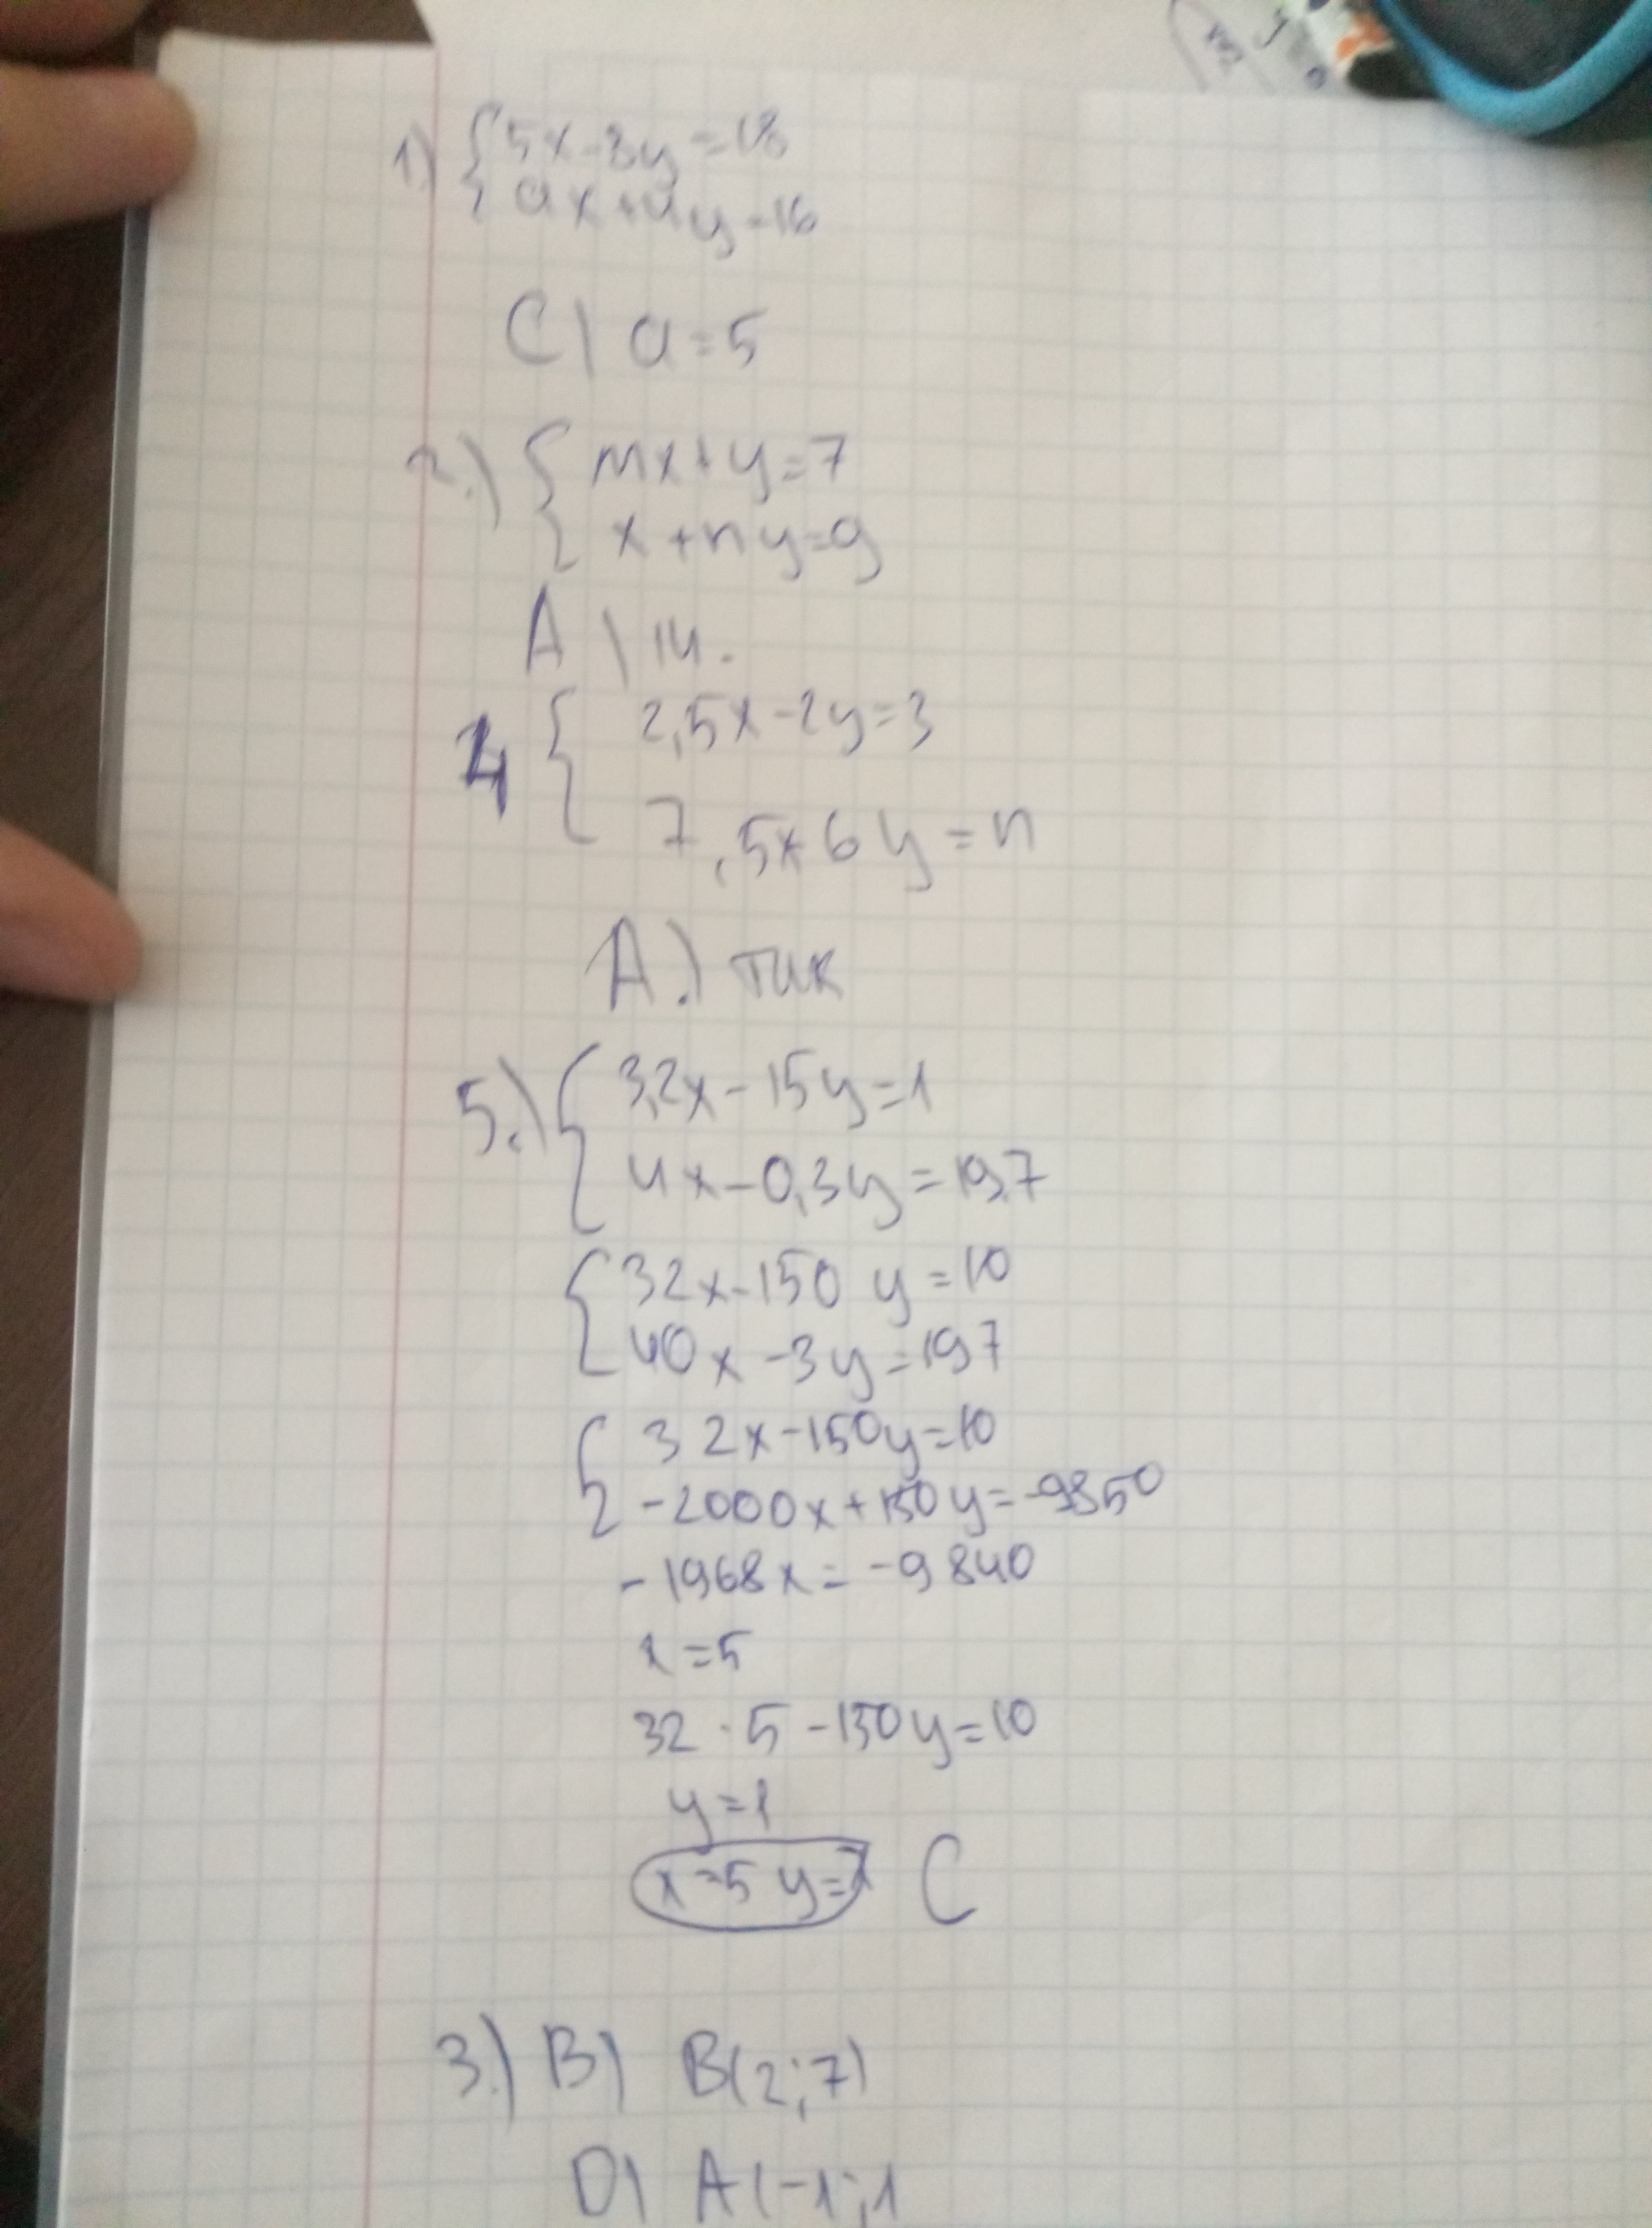 1) { 5x-3y=18
ax+4y=16
C) a=5
2.) { mx+y=7
x+ny=9
A) 14.
4 { 2,5x-2y=3
7,5x 6y=n
A.) так
5.) { 3,2x-15y=1
4x-0,3y=19,7
{ 32x-150y=10
40x-3y=197
{ 32x-150y=10
-2000x+150y=-9850
-1968x=-9840
x=5
32·5-150y=10
y=1
x=5 y=1 C
3.) B) B(2;7)
D) A(-1;1